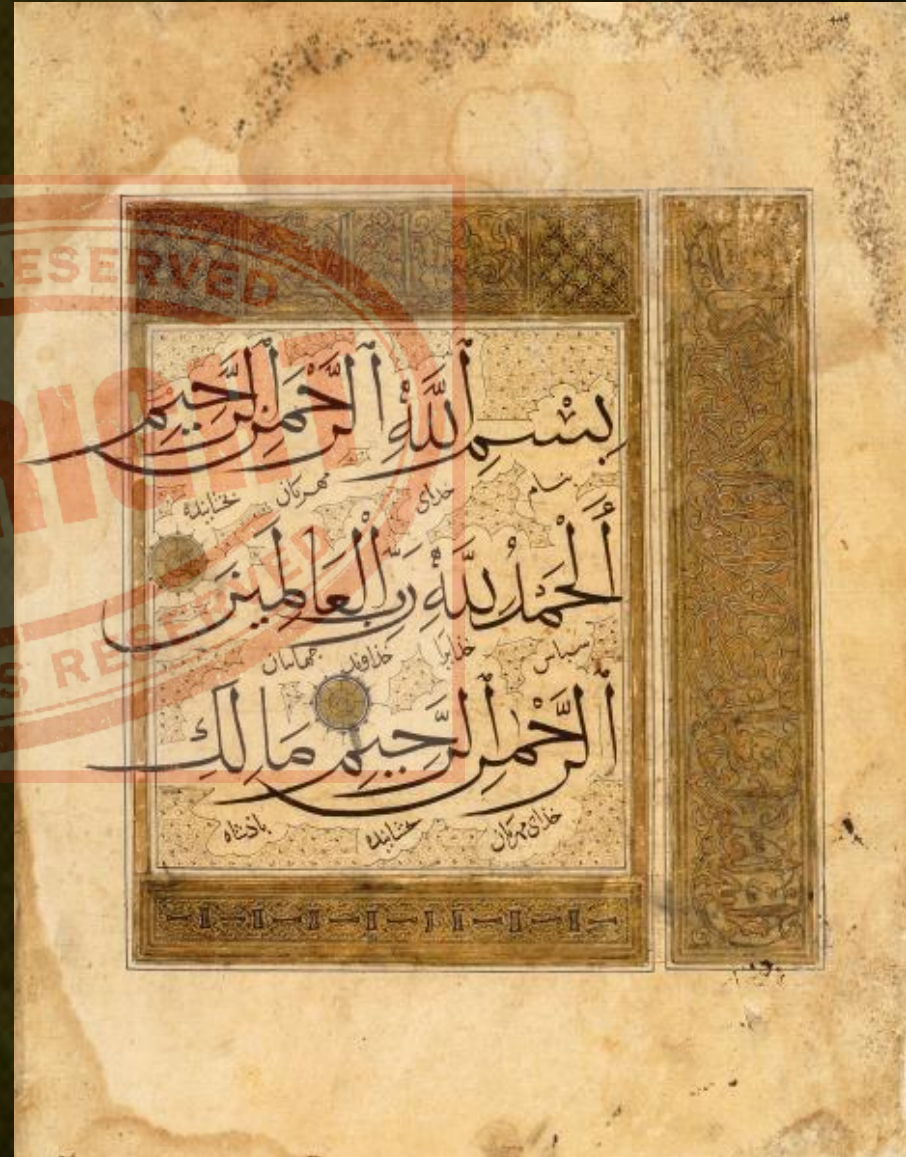 بِسْمِ ٱللَّهِ ٱلرَّحْمَنِ ٱلرَّحِيمِ
بنام خدای مهربان بخشاینده
أَلْحَمْدُ لِلَّهِ رَبِّ ٱلْعَالَمِينَ
سپاس خدایرا خداوند جهانیان
ٱلرَّحْمٰنِ ٱلرَّحِيمِ مَالِكِ
خدای مهربان بخشاینده پادشاه
ESERVED
RIGHT
S RESERVED